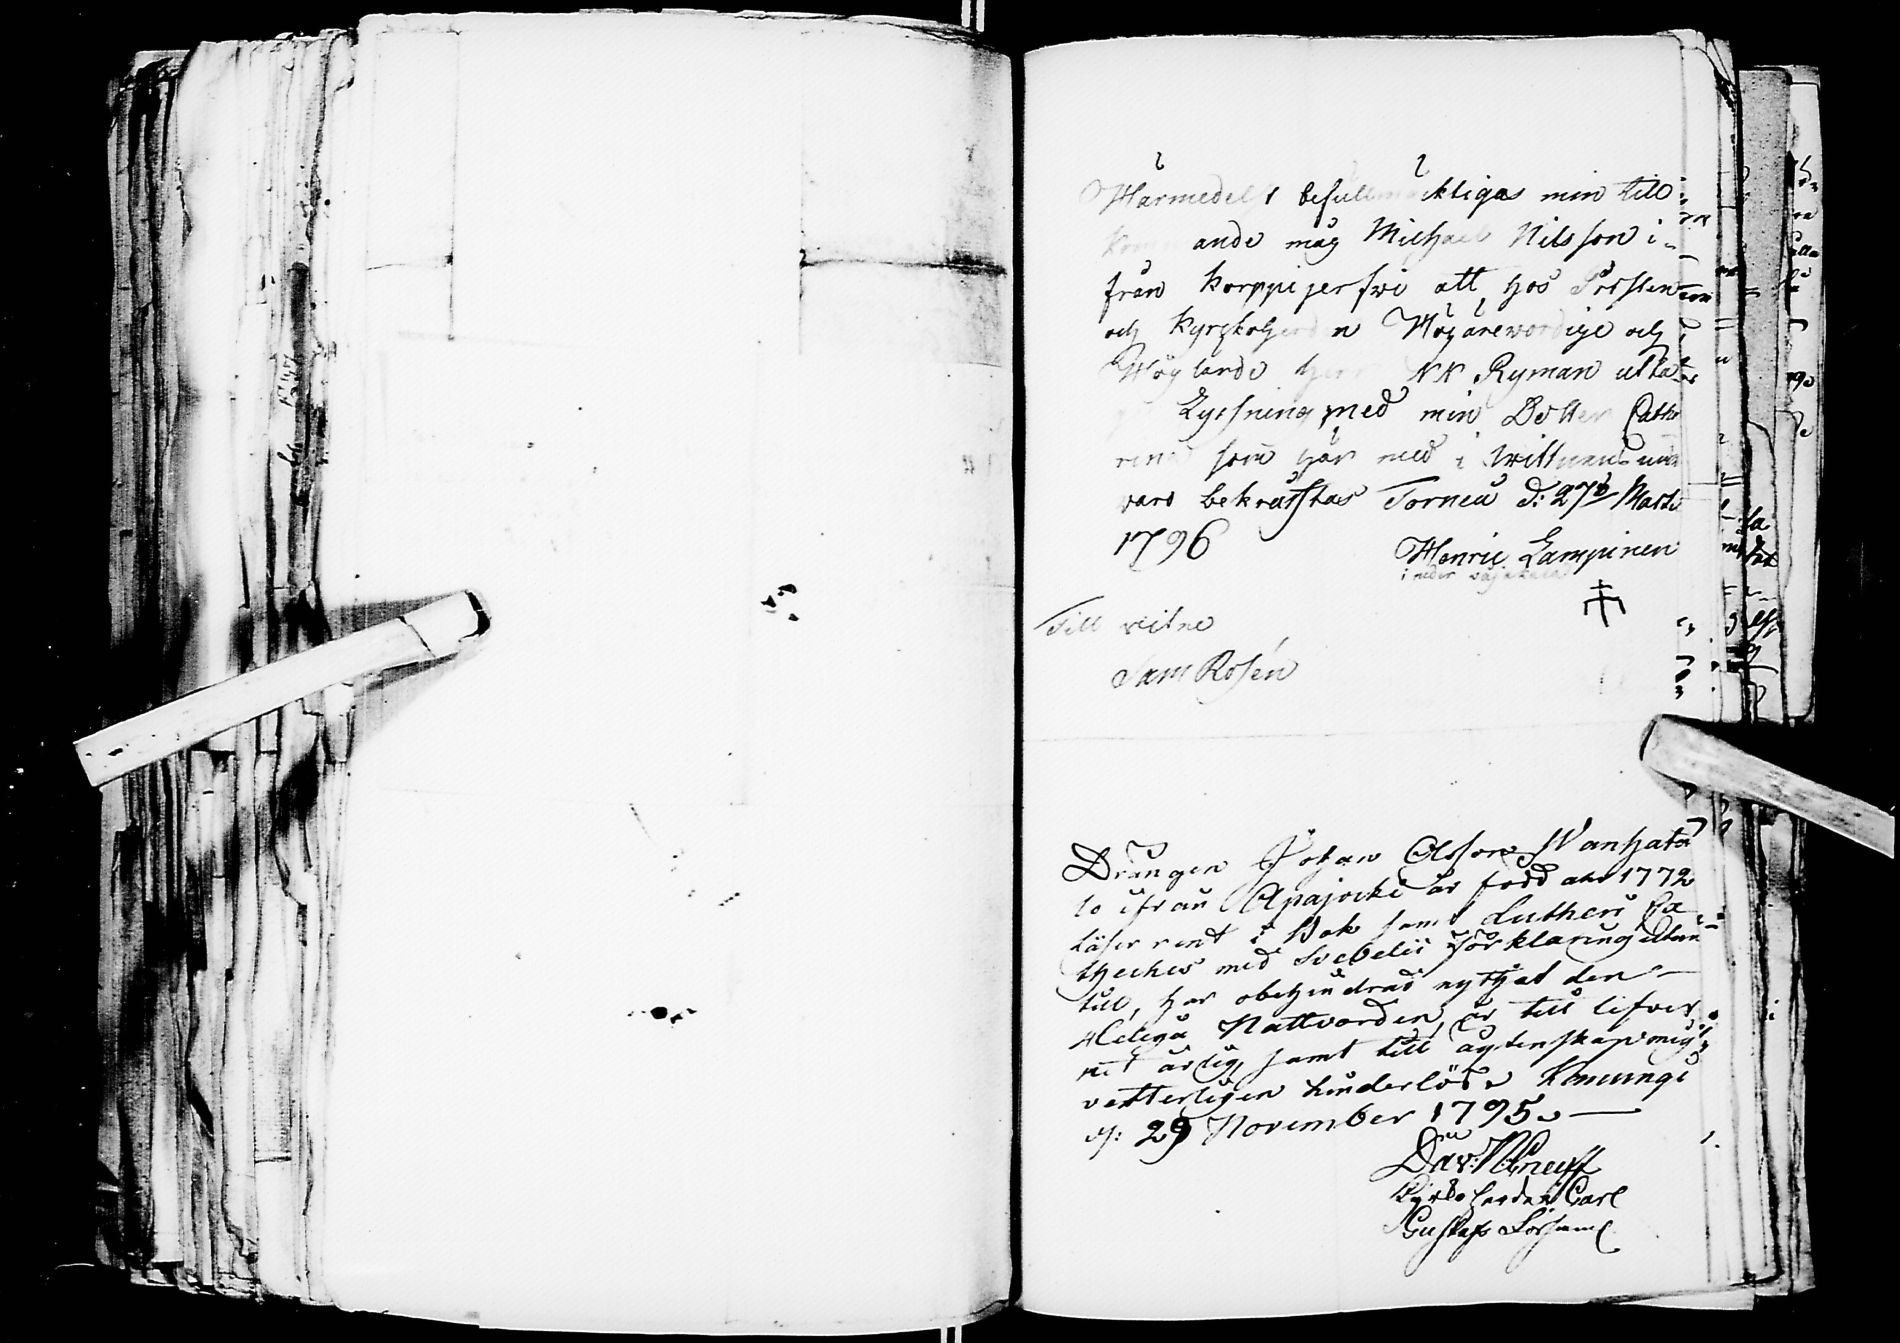 Härmedelst befullmäktigas min till
kommande måg Michael Nilsson i-
från Korppijerfwi att hos Prosten
och Kyrckoherden Högärewördige och
Höglärde Herr NN Ryman uttaga
Lyssning med min Dotter Catha
rina som här med i wittnens när
varo bekräfftas Torneå d: 27de Martii
1796
Henric Lampinen
i neder
Till vitne
Sam Rosén
Drängen Johan Olsson Wanhata
lo ifrån Apajocki är född åhr 1772
Läser rent i Bok samt Lutheri Ca
theches med Svebelii Förklaring utan
till, har obehindrad nythjat den
Heliga Nattvarden, är till lefver
net ärlig, samt till ägtenskap mig
vetterligen hinderlös. Kemingi
d: 29 November 1795.
Dav:
Kyrkoherde i Carl
Gustafs Församl.